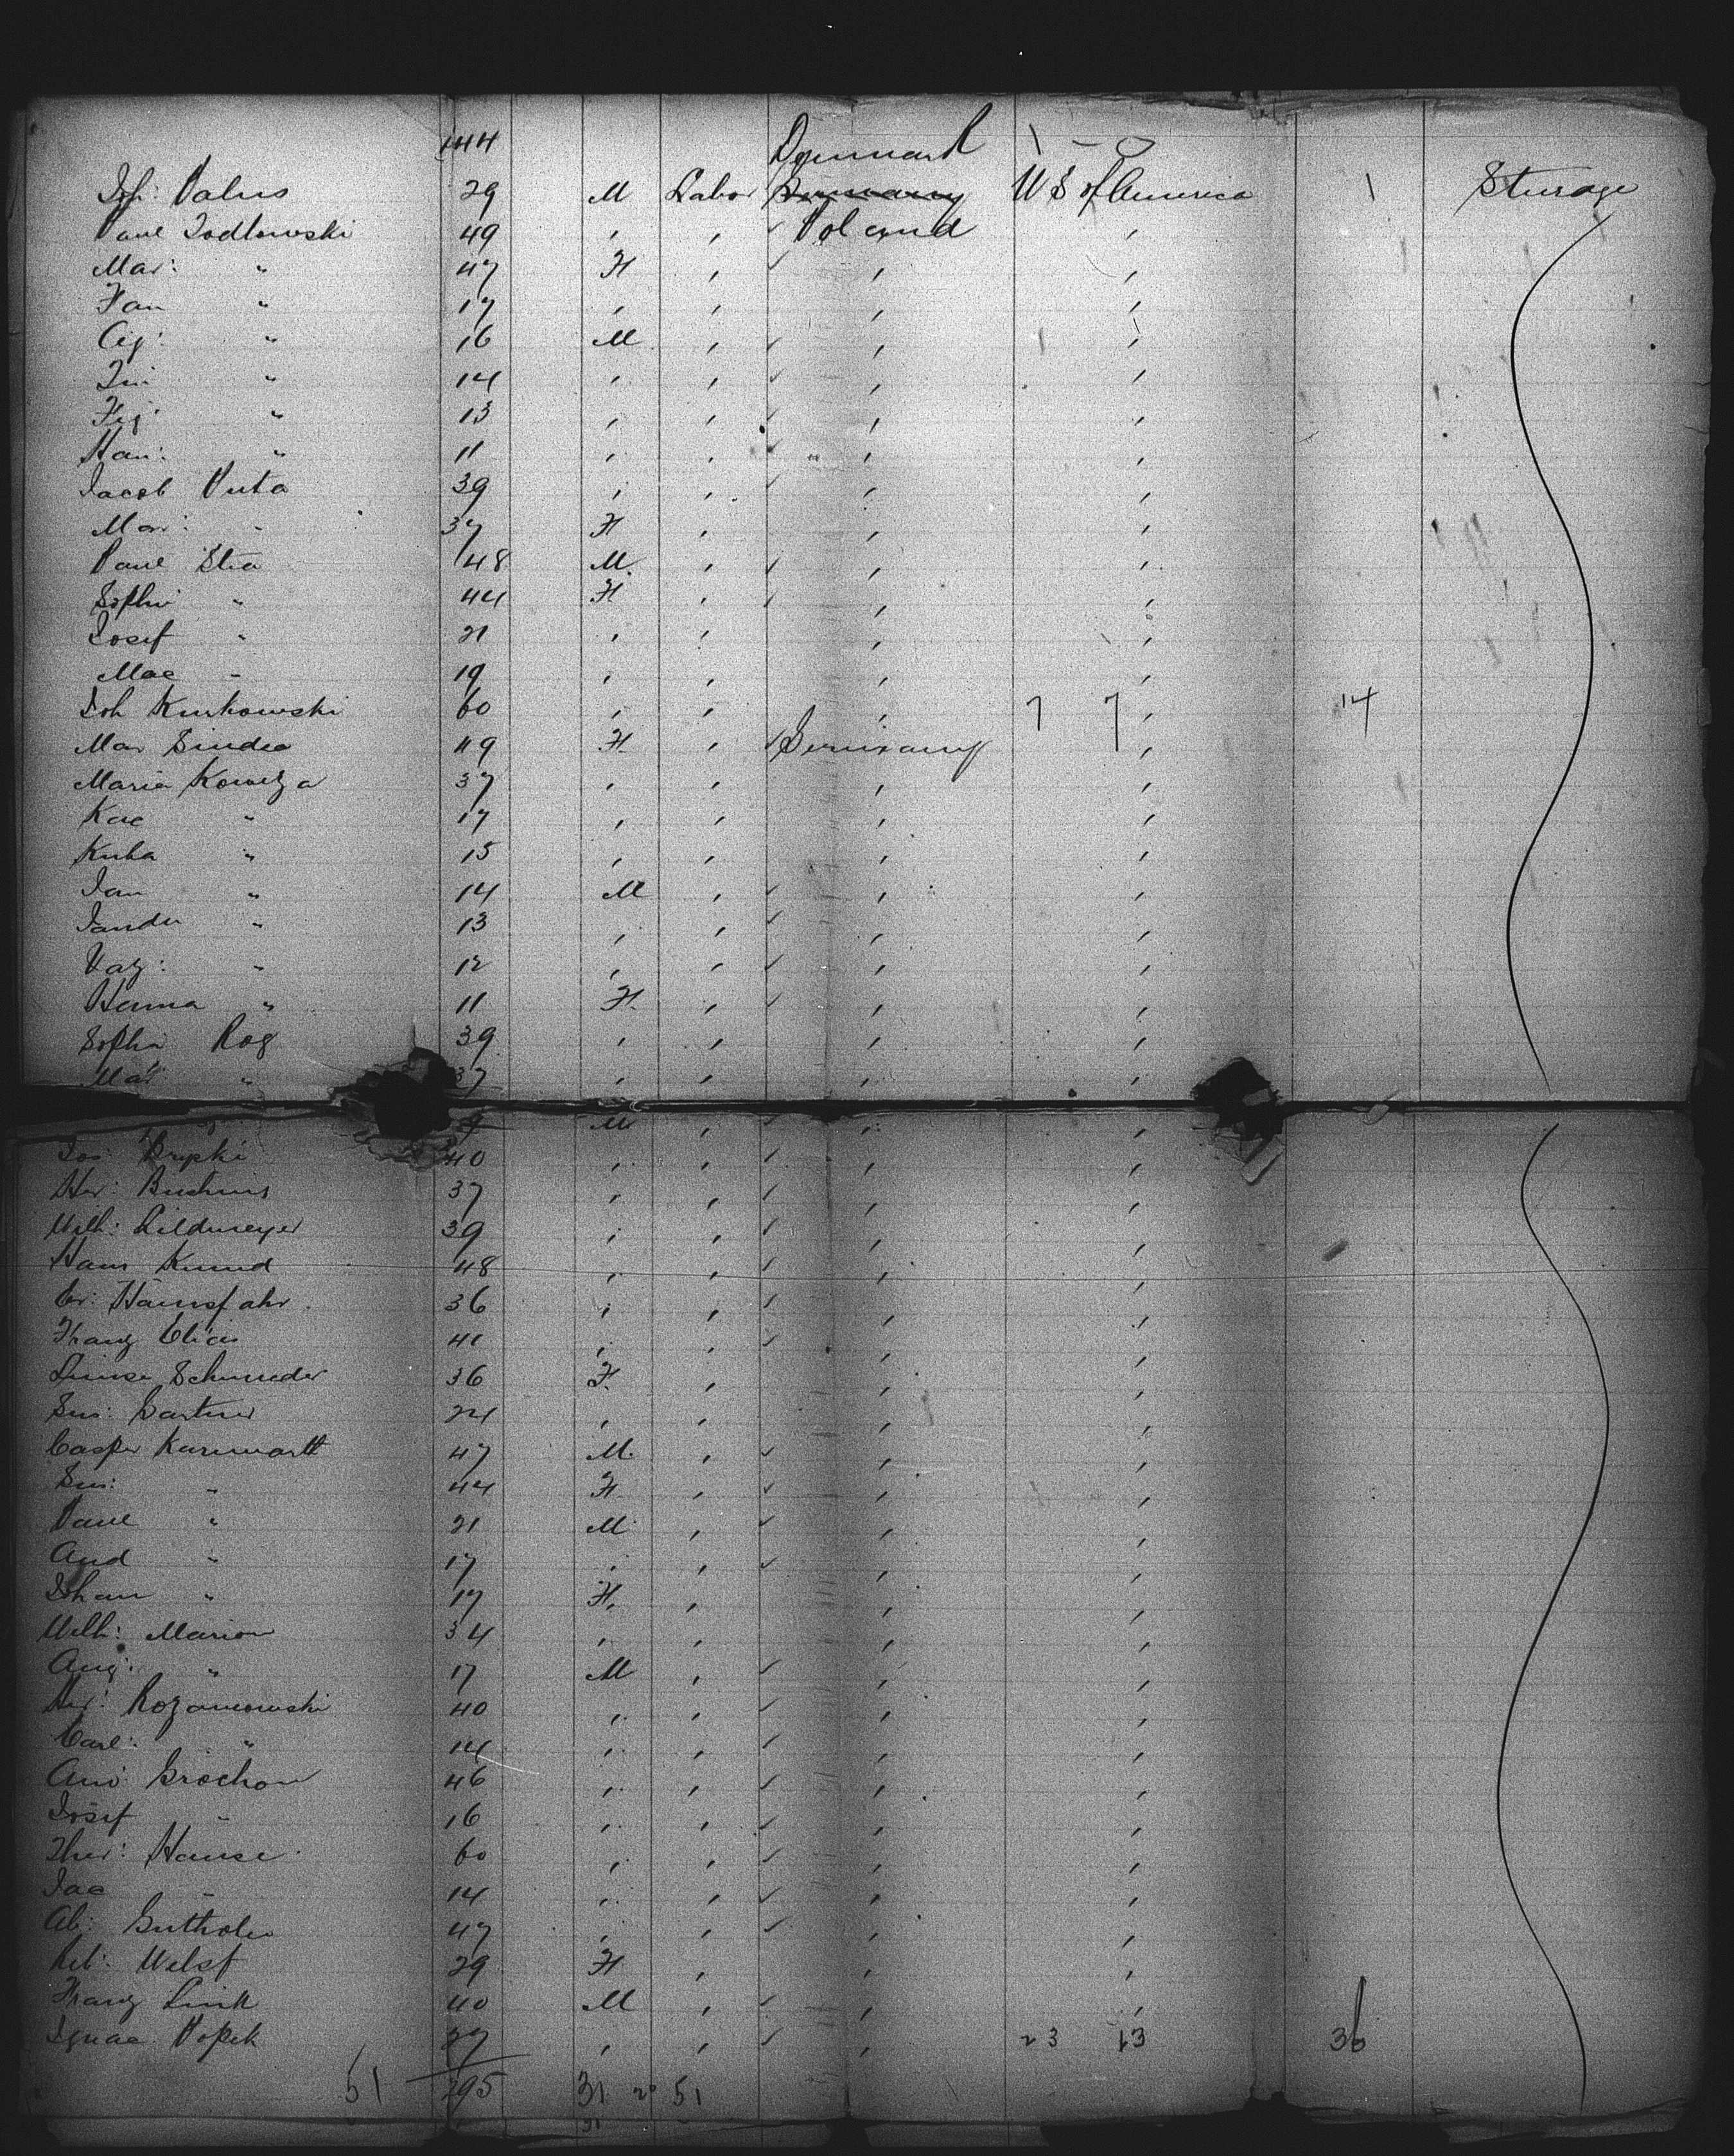 144 Denmark 1 - 0
Joh: Palus 29 M Labor Germany U S of America 1 Sturage
Paul Jodlowski 49 " " Poland "
Mar: " 47 F " " "
Fan " 17 " " " "
" 16 M " " "
" 14 " " " "
" 13 " " " "
Han: " 11 " " " "
Jacob Puta 39 " " " "
Mar: " 37 F " " "
Paul Stia 48 M " " "
Sophi " 44 F " " "
Josef " 21 " " " "
Mac " 19 " " " "
Joh Kurkowski 60 " " " 7 7 " 14
Mar 49 F " Germany "
Maria Kowelza 37 " " " "
Kac " 17 " " " "
Kuba " 15 " " " "
Jan " 14 M " " "
" 13 " " " "
" 12 " " " "
Hanna " 11 F " " "
Sophi Rog 39 " " " "
Mar " 37 " " " "
M " " "
Jos: Krypki 40 " " " "
Her: 37 " " " "
Wilh: Lildmeyer 39 " " " "
Hans Knud 48 " " " "
Hansfahr 36 " " " "
Franz Elias 41 " " " "
Luise Schneeder 36 F " " "
Sus: Gartner 24 " " " "
Casper Karnwartt 47 M " " "
Sus: " 44 F " " "
Paul " 21 M " " "
And " 17 " " " "
Johan " 17 F " " "
Wilh: Marion 34 " " " "
Aug: " 17 M " " "
Her: Rozanowski 40 " " " "
Carl: " 14 " " " "
And: Grochow 46 " " " "
Josef " 16 " " " "
Ther: Hause 60 " " " "
Jac " 14 " " " "
Ab: 47 " " " "
Reb: Welsf 29 F " " "
Franz Link 40 M " " "
Ignac Popek 27 " " " 23 13 36
51 195 31 20 51
31